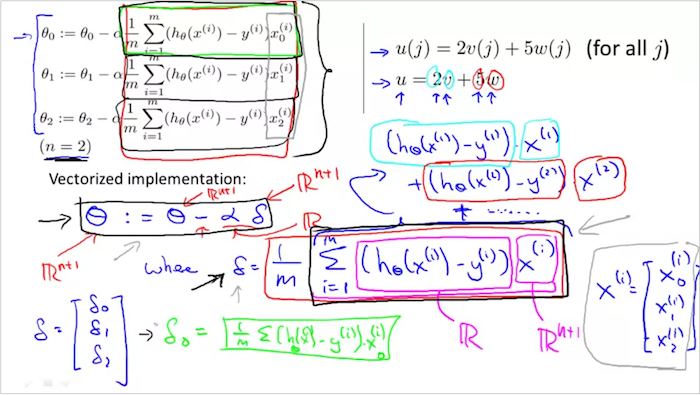 θ₀ := θ₀ - α 1/m ∑_{i=1}^{m} (h_θ(x^{(i)}) - y^{(i)}) x_0^{(i)}
θ₁ := θ₁ - α 1/m ∑_{i=1}^{m} (h_θ(x^{(i)}) - y^{(i)}) x_1^{(i)}
θ₂ := θ₂ - α 1/m ∑_{i=1}^{m} (h_θ(x^{(i)}) - y^{(i)}) x_2^{(i)}
(n = 2)
→ u(j) = 2v(j) + 5w(j) (for all j)
→ u = 2v + 5w
↑ ↑↑ ↑↑
(h_θ(x^{(1)}) - y^{(1)}) · x^{(1)}
+ (h_θ(x^{(2)}) - y^{(2)}) · x^{(2)}
+ ......
Vectorized implementation:
ℝ^{n+1} ℝ^{n+1}
→ θ := θ - α δ
ℝ^{n+1} ℝ
where → δ = 1/m ∑_{i=1}^{m} (h_θ(x^{(i)}) - y^{(i)}) x^{(i)}
ℝ ℝ^{n+1}
x^{(i)} = [x_0^{(i)} x_1^{(i)} x_2^{(i)}]
δ = [δ₀ δ₁ δ₂] → δ₀ = 1/m ∑ (h_θ(x^{(i)}) - y^{(i)}) · x_0^{(i)}